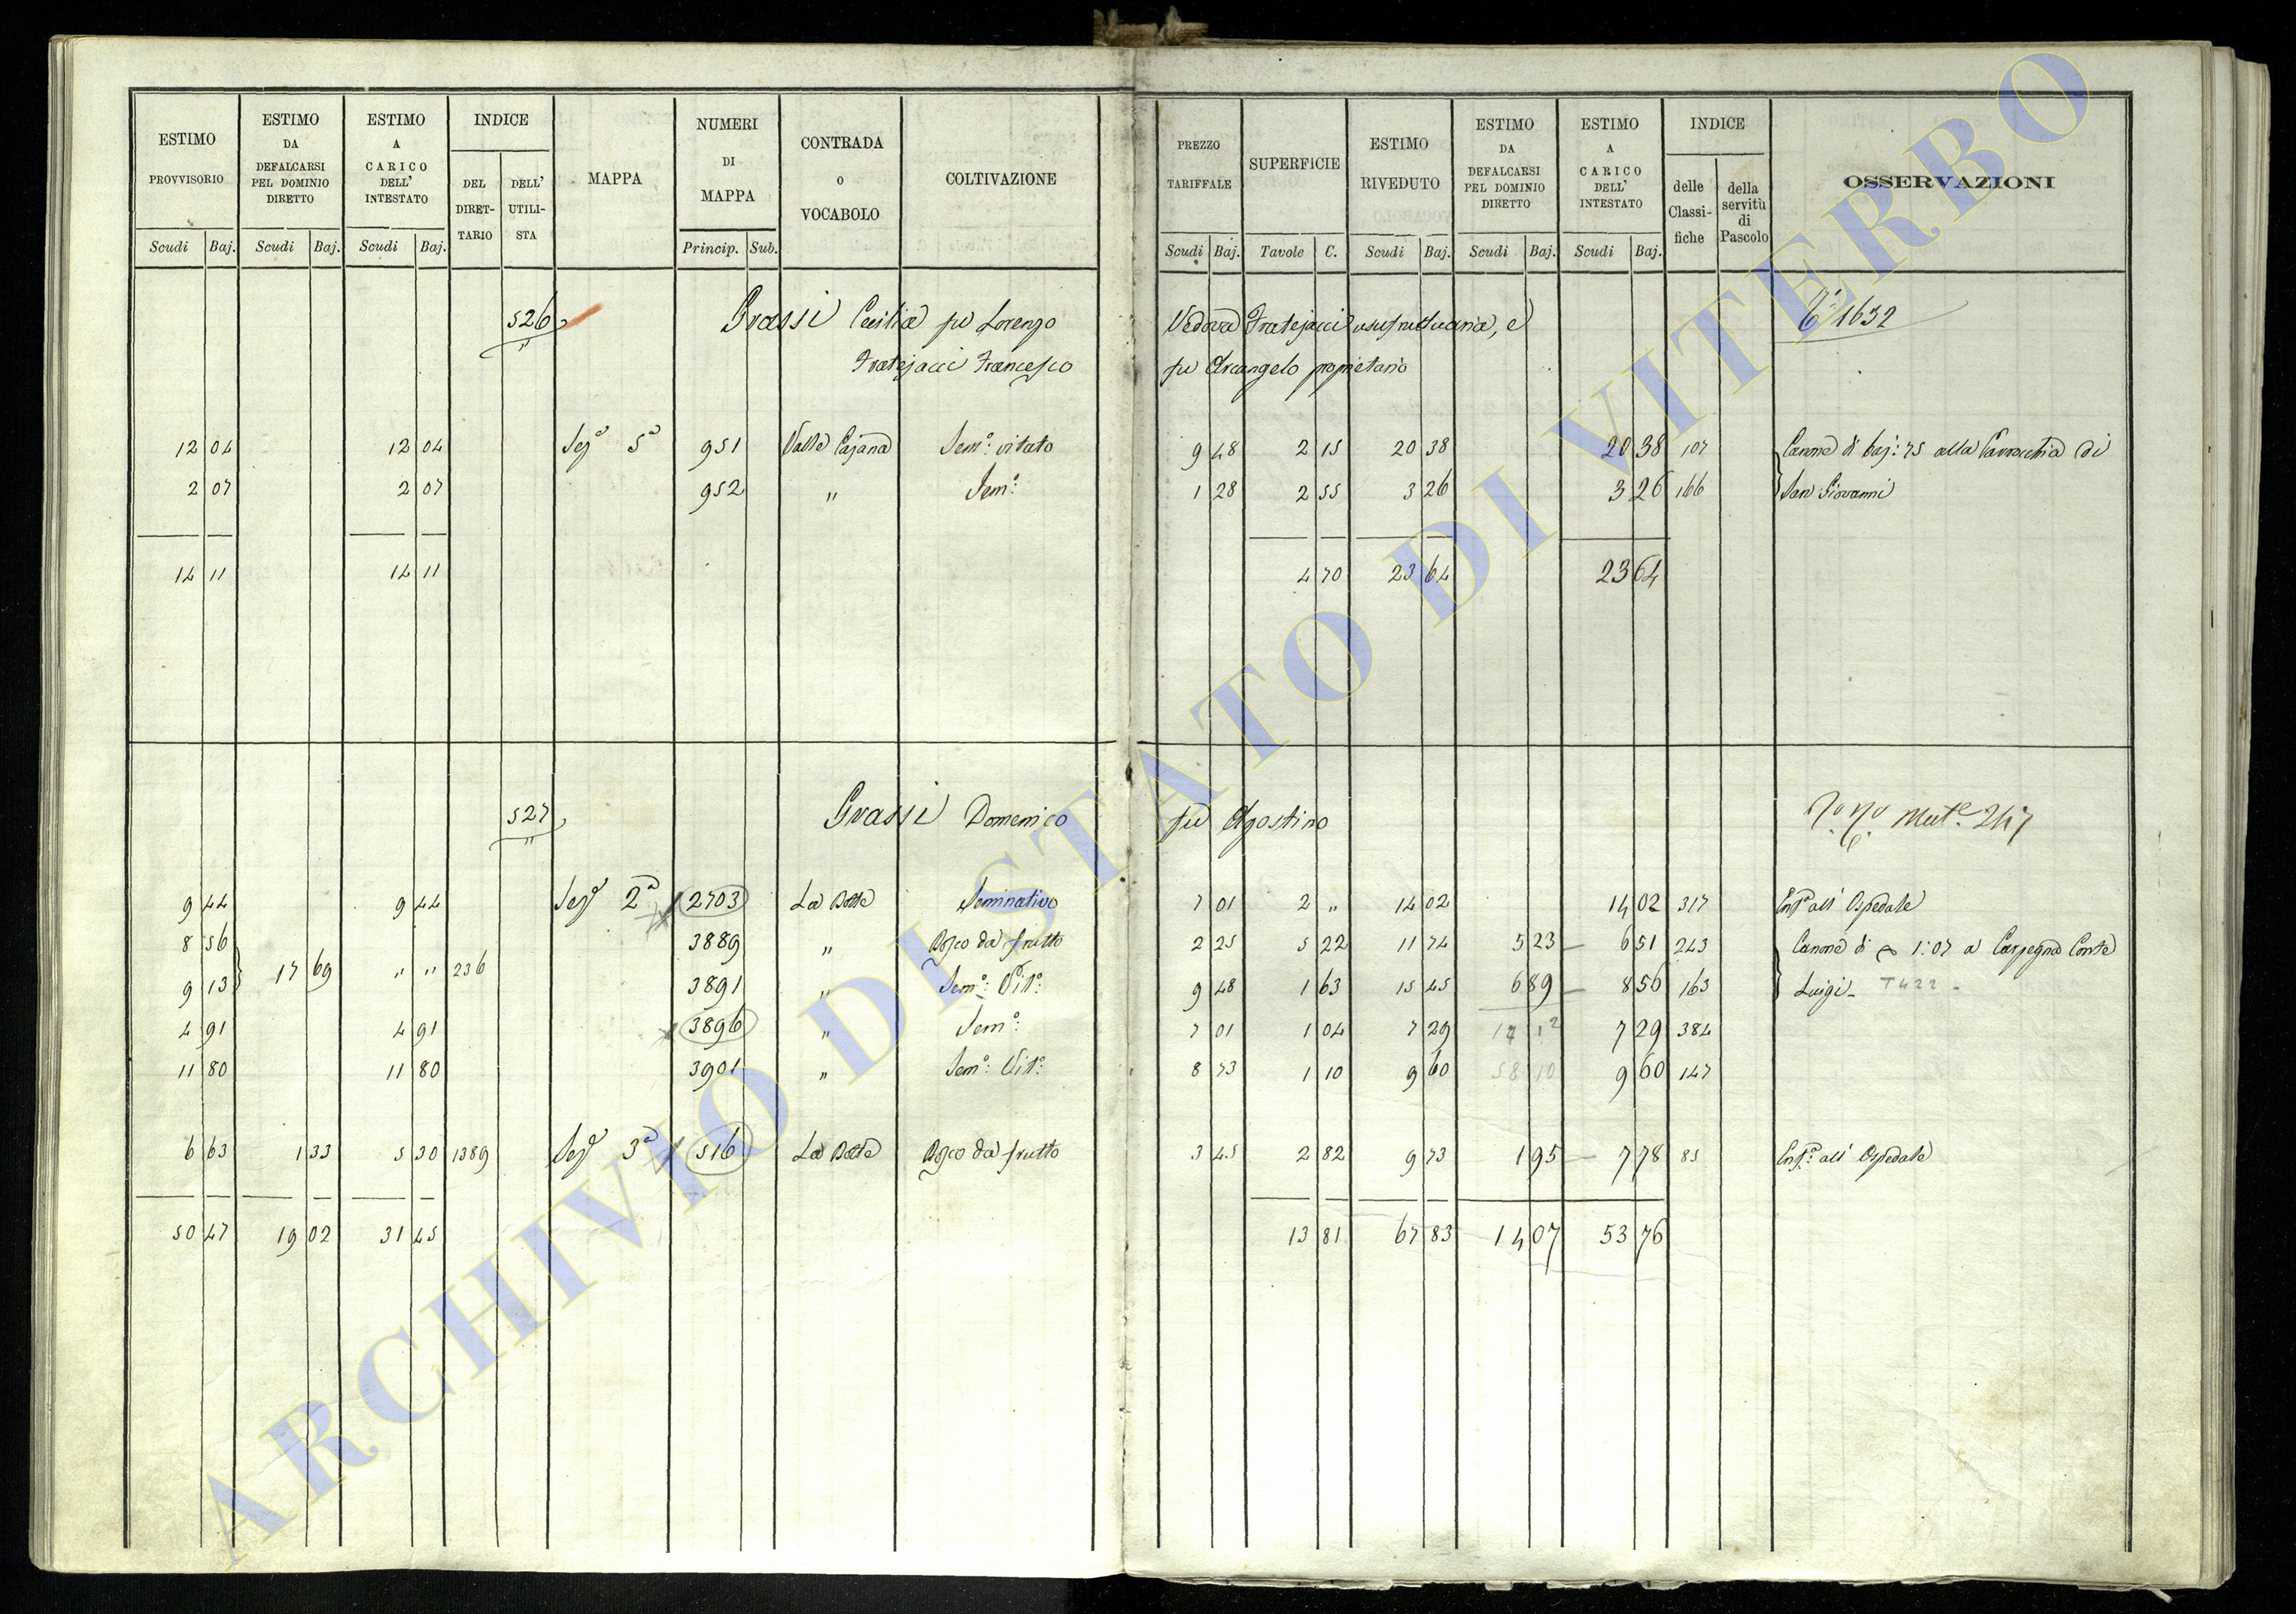 ESTIMO PROVVISORIO
ESTIMO DA DEFALCARSI PEL DOMINIO DIRETTO
ESTIMO A CARICO DELL' INTESTATO
INDICE
DEL DIRET-TARIO
DELL' UTILI-STA
MAPPA
NUMERI DI MAPPA
CONTRADA O VOCABOLO
COLTIVAZIONE
PREZZO TARIFFALE
SUPERFICIE
ESTIMO RIVEDUTO
ESTIMO DA DEFALCARSI PEL DOMINIO DIRETTO
ESTIMO A CARICO DELL' INTESTATO
INDICE
delle Classi-fiche
della servitù di Pascolo
OSSERVAZIONI
Scudi Baj. Scudi Baj. Scudi Baj. Princip. Sub. Scudi Baj. Tavole C. Scudi Baj. Scudi Baj. Scudi Baj.
526 Grassi Cecilia fu Lorenzo Vedova Fratejacci usufruttuaria, e 1632
Fratejacci Francesco fu Arcangelo proprietario
12 04 12 04 Sez.a 5a 951 Valle Cajana Sem.o vitato 9 48 2 15 20 38 20 38 107 Canone di baj: 75 alla Parrocchia di
2 07 2 07 952 " Sem.o 1 28 2 55 3 26 3 26 166 San Giovanni
14 11 14 11 4 70 23 64 23 64
527 Grassi Domenico fu Agostino Mut.e 247
9 44 9 44 Sez.a 2a 2703 La Botte Seminativo 7 01 2 " 14 02 14 02 317 all' Ospedale
8 56 3889 " Bosco da frutto 2 25 5 22 11 74 5 23 6 51 243 Canone di 1:07 a Carpegna Conte
9 13 17 69 " " 236 3891 " Sem.o Vit.o 9 48 1 63 15 45 6 89 8 56 163 Luigi T422
4 91 4 91 3896 " Sem.o 7 01 1 04 7 29 7 29 384
11 80 11 80 3901 " Sem.o Vit.o 8 73 1 10 9 60 58 10 9 60 147
6 63 1 33 5 30 1389 Sez.a 3a 516 La Botte Bosco da frutto 3 45 2 82 9 73 1 95 7 78 85 all' Ospedale
50 47 19 02 31 45 13 81 67 83 14 07 53 76
ARCHIVIO DI STATO DI VITERBO